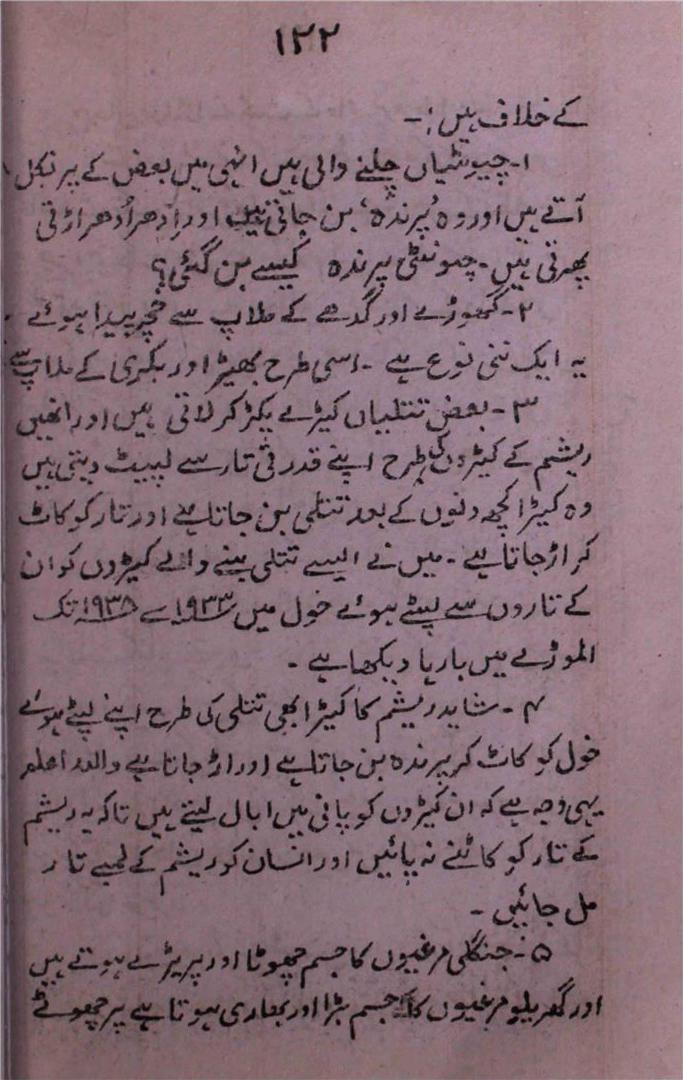 ۱۲۲
کے خلاف ہیں:-
۱- چیونٹیاں چلنے والی ہیں انہی میں بعض کے پر نکل
آتے ہیں اور وہ ’پرندہ‘ بن جاتی ہیں اور اِدھر اُدھر اڑتی
پھرتی ہیں۔ چیونٹی پرندہ کیسے بن گئی؟
۲- گھوڑے اور گدھے کے ملاپ سے خچر پیدا ہوئے
یہ ایک نئی نوع ہے ۔ اسی طرح بھیڑ اور بکری کے ملاپ سے
۳- بعض تتلیاں کیڑے پکڑ کر لاتی ہیں اور انھیں
ریشم کے کیڑوں کی طرح اپنے قدرتی تار سے لپیٹ دیتی ہیں
وہ کیڑا کچھ دنوں کے بعد تتلی بن جاتا ہے اور تار کو کاٹ
کر اڑ جاتا ہے ۔ میں نے ایسے تتلی بننے والے کیڑوں کو ان
کے تاروں سے لپٹے ہوئے خول میں ۱۹۳۳ سے ۱۹۳۵ تک
الموڑے میں بارہا دیکھا ہے ۔
۴- شاید ریشم کا کیڑا بھی تتلی کی طرح اپنے لپٹے ہوئے
خول کو کاٹ کر پرندہ بن جاتا ہے اور اڑ جاتا ہے واللہ اعلم
یہی وجہ ہے کہ ان کیڑوں کو پانی میں ابال لیتے ہیں تاکہ یہ ریشم
کے تار کو کاٹنے نہ پائیں اور انسان کو ریشم کے لمبے تار
مل جائیں ۔
۵- جنگلی مرغیوں کا جسم چھوٹا اور پر بڑے ہوتے ہیں
اور گھریلو مرغیوں کا جسم بڑا اور بھاری ہوتا ہے پر چھوٹے